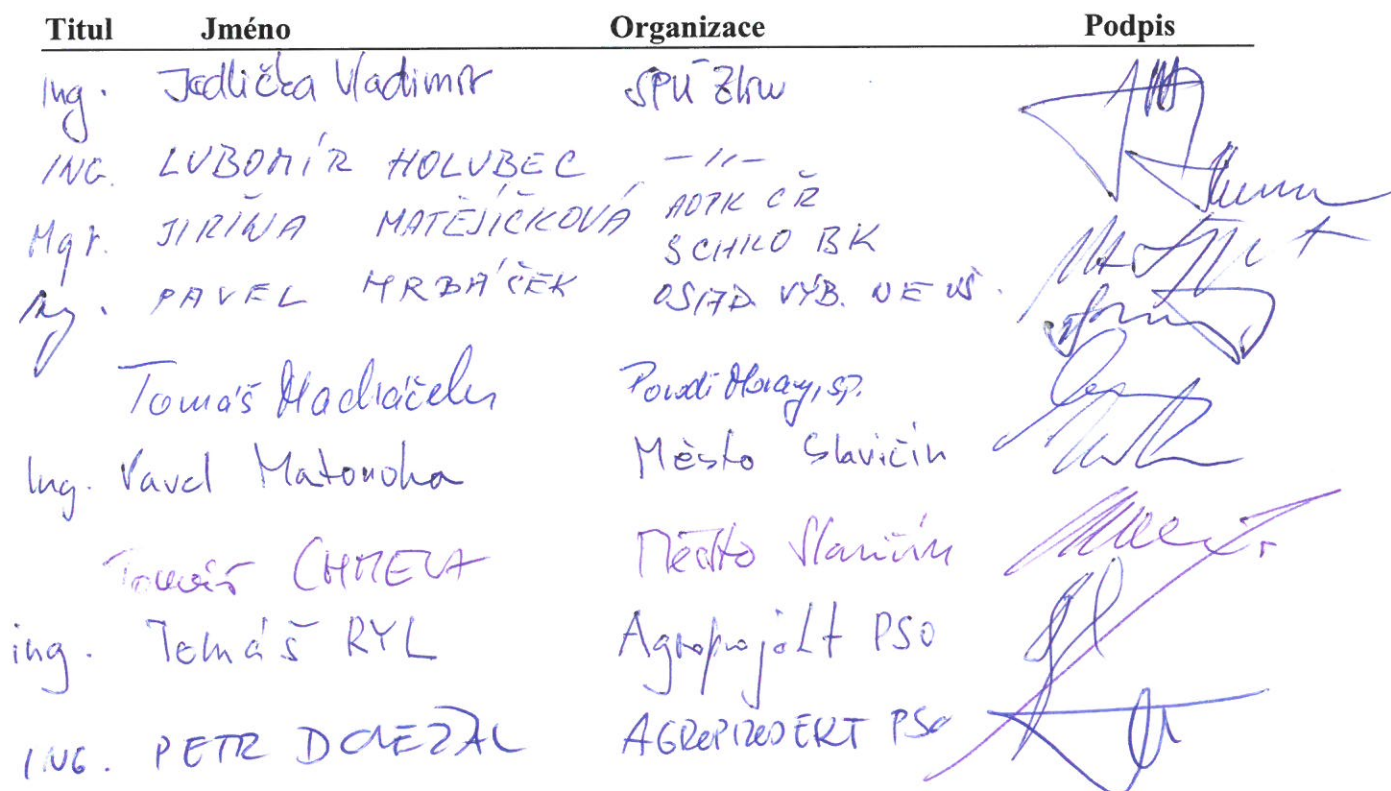 Titul Jméno Organizace Podpis
Ing. Jedlička Vladimír SPÚ Zlín
ING. LUBOMÍR HOLUBEC -11-
Mgr. JIŘINA MATĚJÍČKOVÁ AOPK ČR
SCHKO BK
Ing. PAVEL MRBÁČEK OSÁD. VÝB. NEÚŠ.
Tomáš Macháček Povodí Moravy, s.p.
Ing. Pavel Matonoha Město Slavičín
Tomáš CHMELA Město Slavičín
ing. Tomáš RYL Agroprojekt PSO
ING. PETR DOLEŽAL AGROPROJEKT PSO